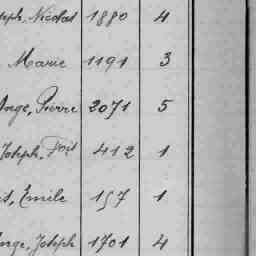 Nicolas 1880 4
Marie 1191 3
Ange, Pierre 2071 5
Joseph, Fois 412 1
Emile 157 1
Ange, Joseph 1701 4